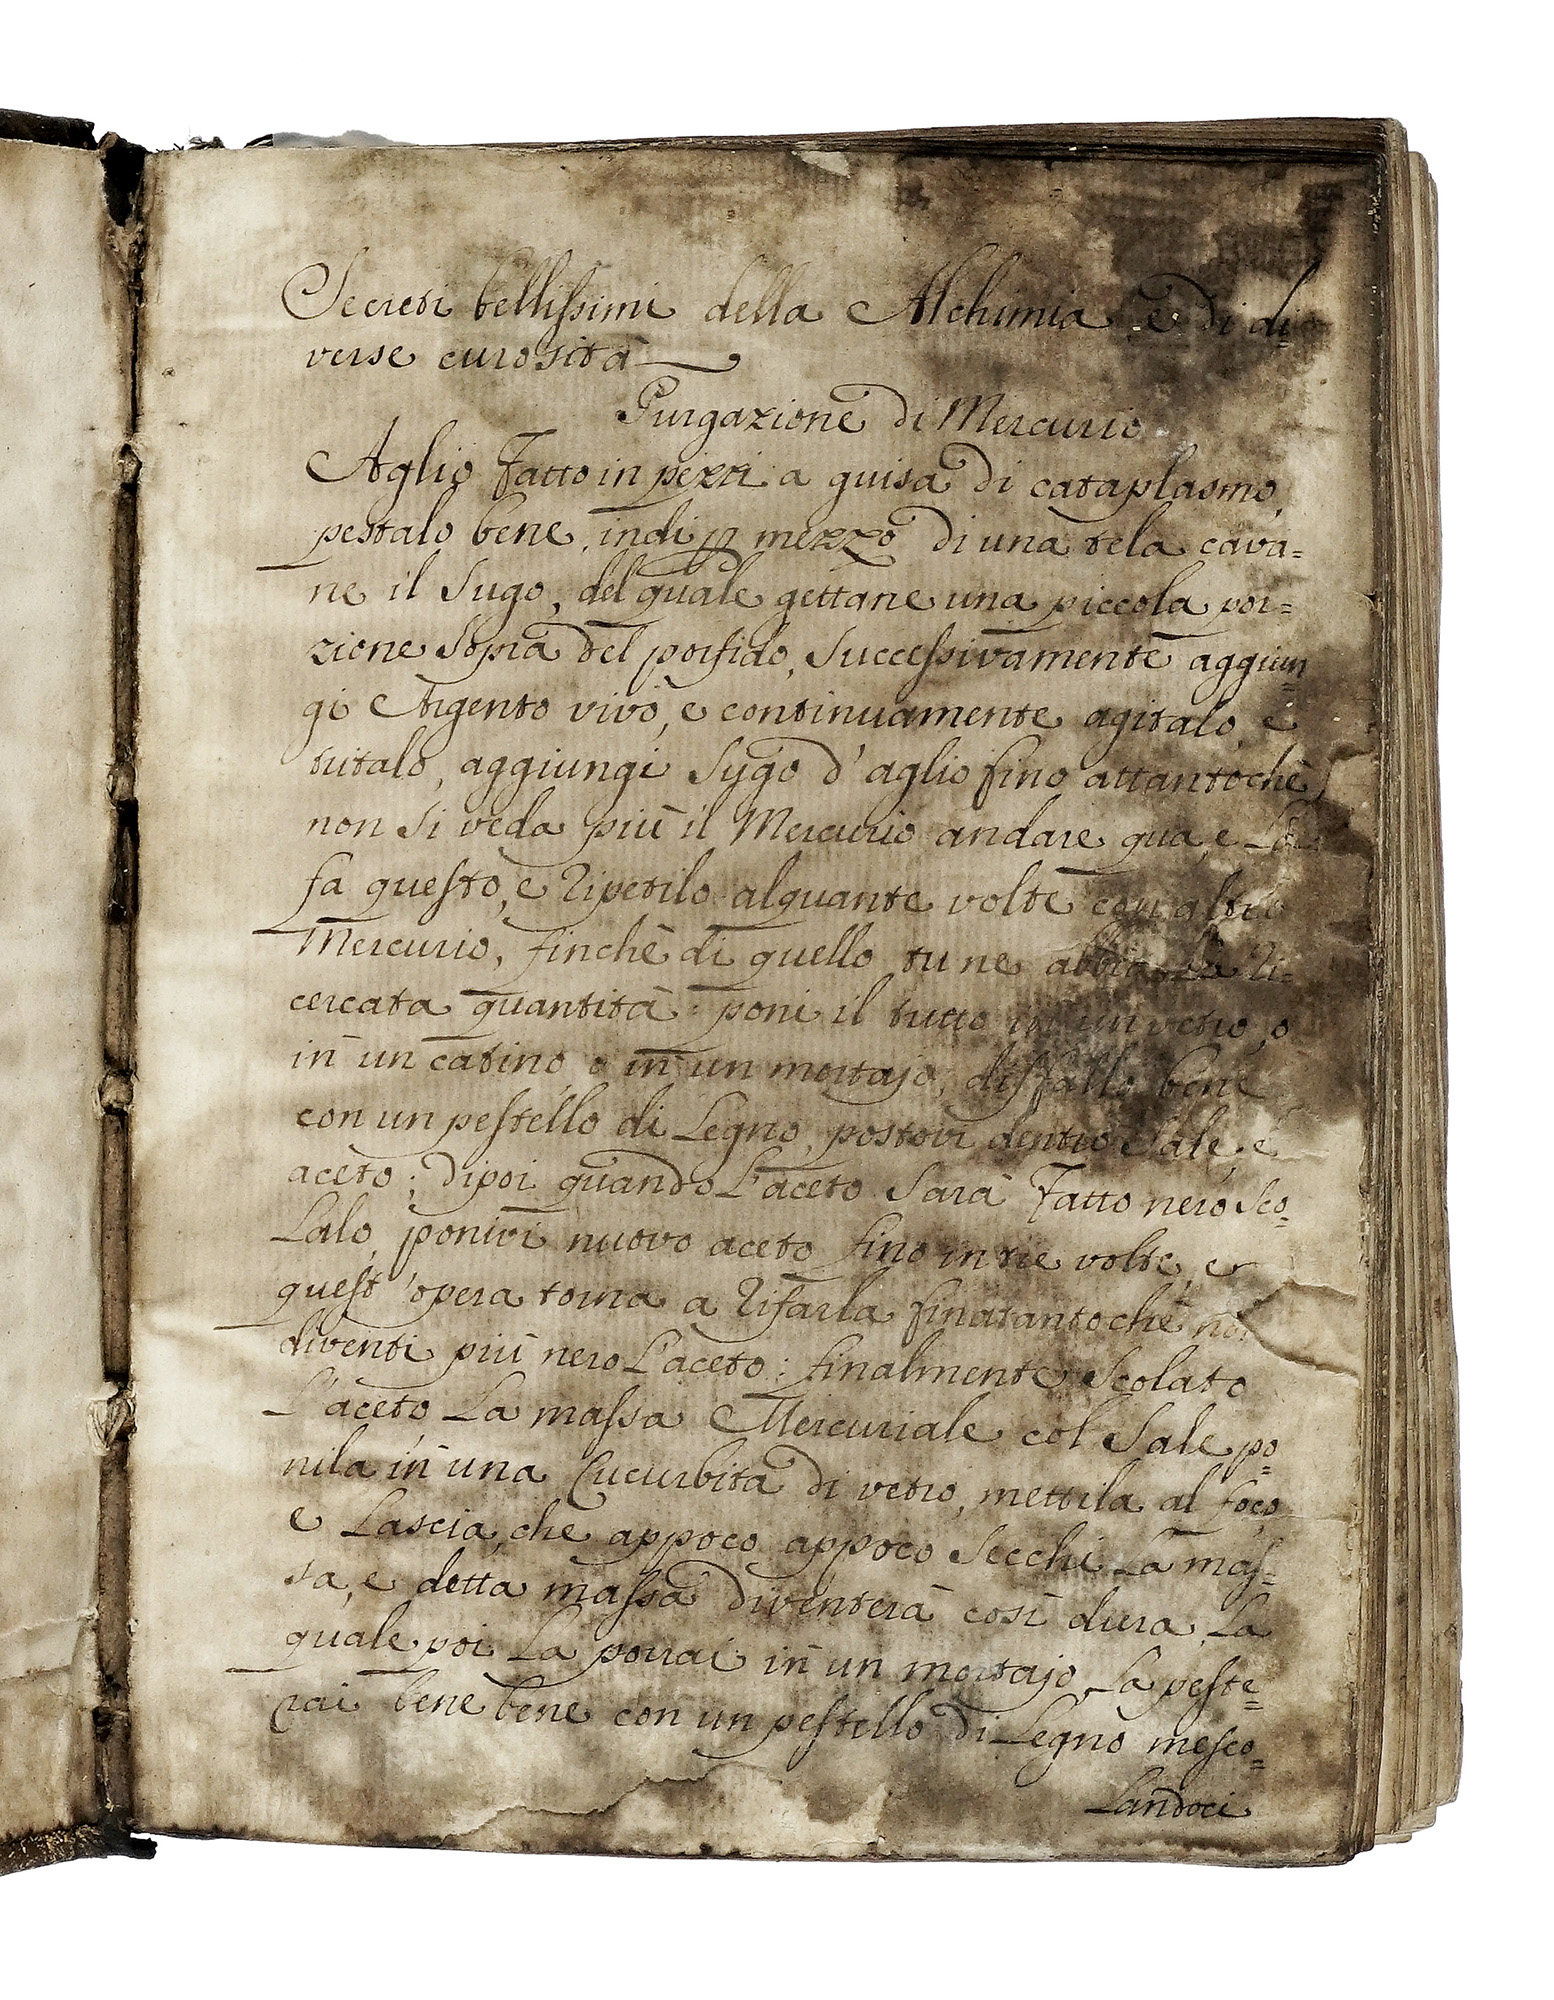 Secreti bellissimi della Alchimia e di di
verse curosità
Purgazione di Mercurio
Aglio Fatto in pezzi a guisa di cataplasmo,
pestalo bene, indi p mezzo di una tela cava=
ne il Sugo, del quale gettane una piccola por=
zione Sopra del porfido, Successivamente aggiun
gi Argento vivo, e continuamente agitalo, e
tritalo, aggiungi Sugo d'aglio fino attantochè
non Si veda più il Mercurio andare qua, e Là
fa questo, e Ripetilo alquante volte con altro
Mercurio, finchè di quello tu ne abbia La Ri=
cercata quantità: poni il tutto in un vetro, o
in un catino, o in un mortajo, disfallo bene
con un pestello di Legno, postovi dentro Sale, e
aceto; dipoi quando L'aceto Sarà Fatto nero Sco=
Lalo, ponivi nuovo aceto fino in tre volte, e
quest'opera torna a Rifarla finatantochè non
diventi più nero L'aceto: finalmente Scolato
L'aceto, La massa Mercuriale col Sale po=
nila in una Cucurbita di vetro, mettila al foco,
e Lascia, che appoco appoco Secchi La mas=
sa, e detta massa diventerà così dura, La
quale poi La porrai in un mortajo, La peste=
rai bene bene con un pestello di Legno mesco=
Landoci